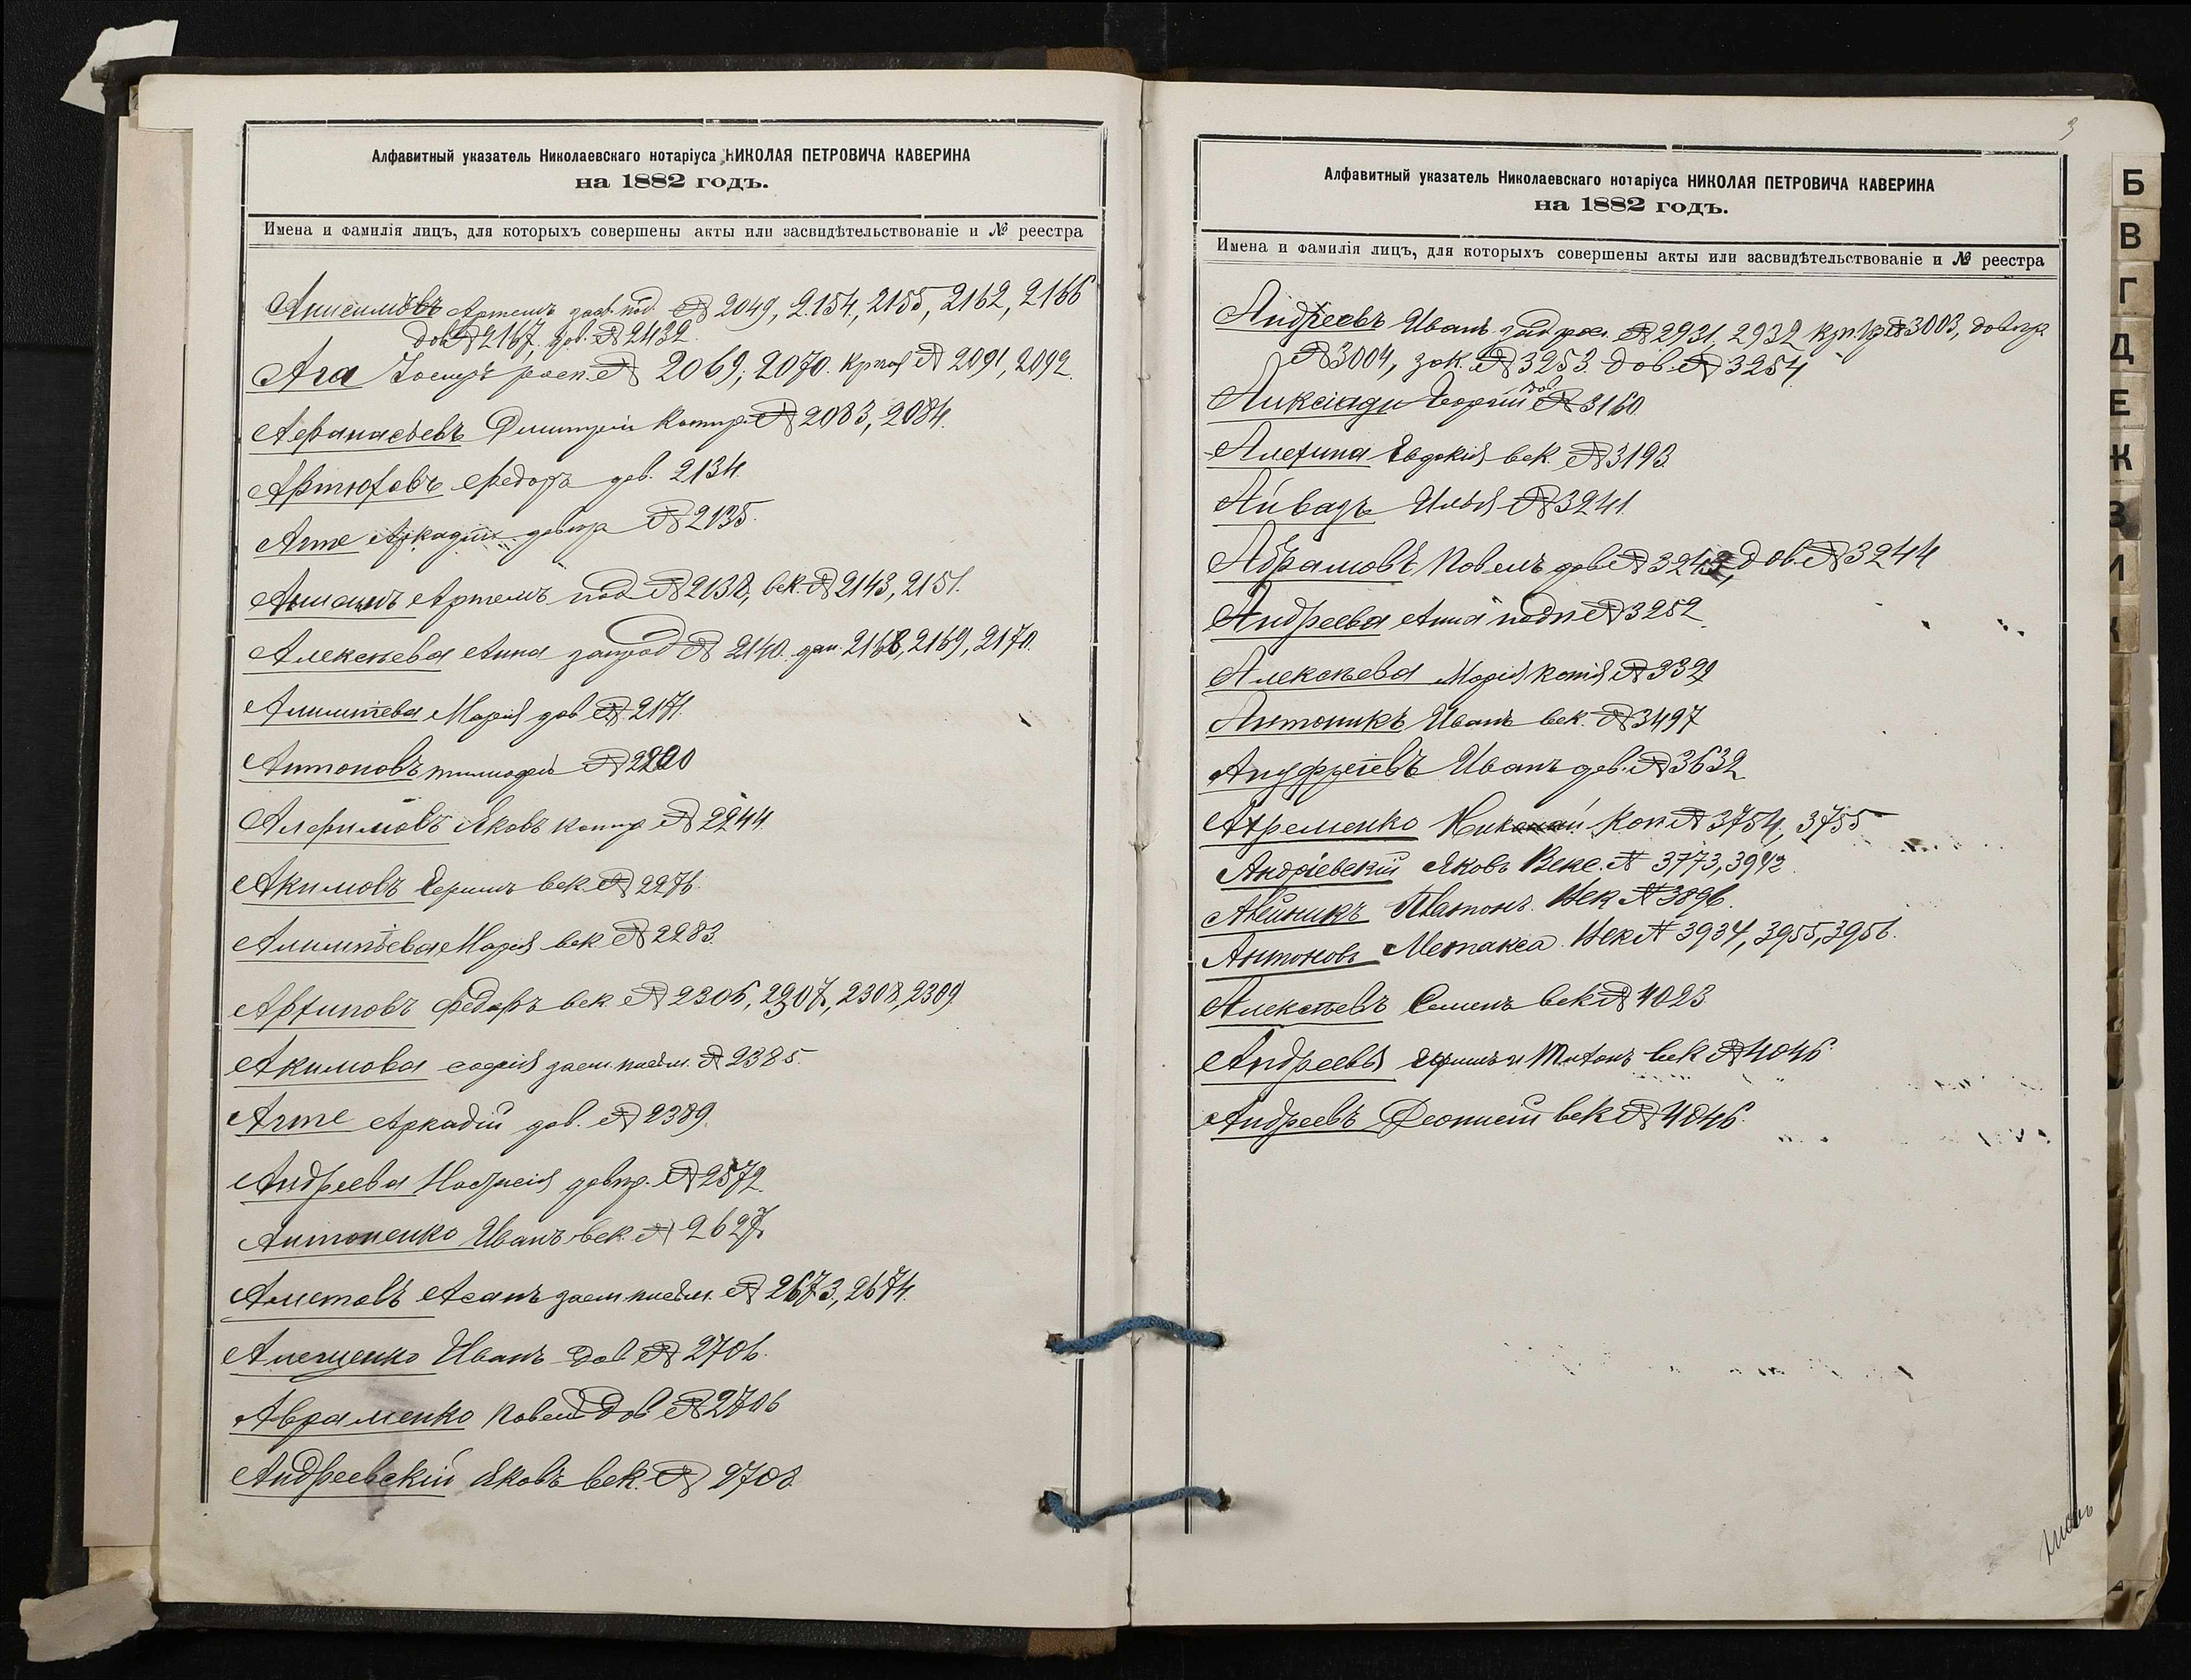 Алфавитный указатель Николаевскаго нотаріуса НИКОЛАЯ ПЕТРОВИЧА КАВЕРИНА
на 1882 годъ.
Имена и фамилія лицъ, для которыхъ совершены акты или засвидѣтельствованіе и № реестра
Анисимовъ Артемъ под № 2049, 2154, 2155, 2162, 2166
дов № 2167, дов. № 2432.
Ага Іосифъ росп. № 2069, 2070. № 2091, 2092.
Афанасьевъ Димитрій контр. № 2083, 2084.
Артюховъ Федоръ дов. 2134.
Агте Аркадій довѣр № 2135.
Артемъ под № 2138, век. № 2143, 2151.
Алексѣева Анна № 2140. 2168, 2169, 2170.
Марія дов № 2171.
Антоновъ тимофей № 2220
Алфимовъ Яковъ контр № 2244.
Акимовъ век № 2276.
Марія век № 2283.
Архиповъ Федоръ век № 2306, 2307, 2308, 2309
Акимова софія заем. письм. № 2385.
Агте Аркадій дов. № 2389.
Андреева довѣр. № 2572.
Антоненко Иванъ век. № 2627.
Аметовъ Асанъ заем. письм. № 2673, 2674.
Иванъ дов № 2706.
Авраменко Павелъ Дов. № 2706
Андреевскій Яковъ век. № 2708.
3
Алфавитный указатель Николаевскаго нотаріуса НИКОЛАЯ ПЕТРОВИЧА КАВЕРИНА
на 1882 годъ.
Имена и фамилія лицъ, для которыхъ совершены акты или засвидѣтельствованіе и № реестра
Андреевъ Иванъ № 2931, 2932 № 3003, довѣр
№ 3004, № 3253. дов. № 3254.
Георгій дов. № 3160
Алехина Евдокія век. № 3193.
Айвазъ Илья № 3241.
Абрамовъ Павелъ дов № 3243, дов. № 3244
Андреева Анна подп № 3252.
Алексѣева Марія копія № 3329
Антоникъ Иванъ век. № 3497
Иванъ дов. № 3632.
Николай Коп № 3754, 3755
Андріевскій Яковъ Векс. № 3773, 3942.
Платонъ. Век № 3896.
Антоновъ Метакса. Век № 3934, 3955, 3956.
Алексѣевъ Семенъ век № 4023
Андреевы и век № 4046.
Андреевъ Деонисій век № 4046.
Б
В
Г
Д
Е
Ж
З
И